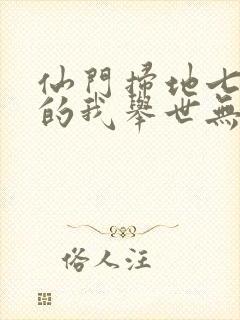 仙門掃地七
的我舉世無
俗人汪